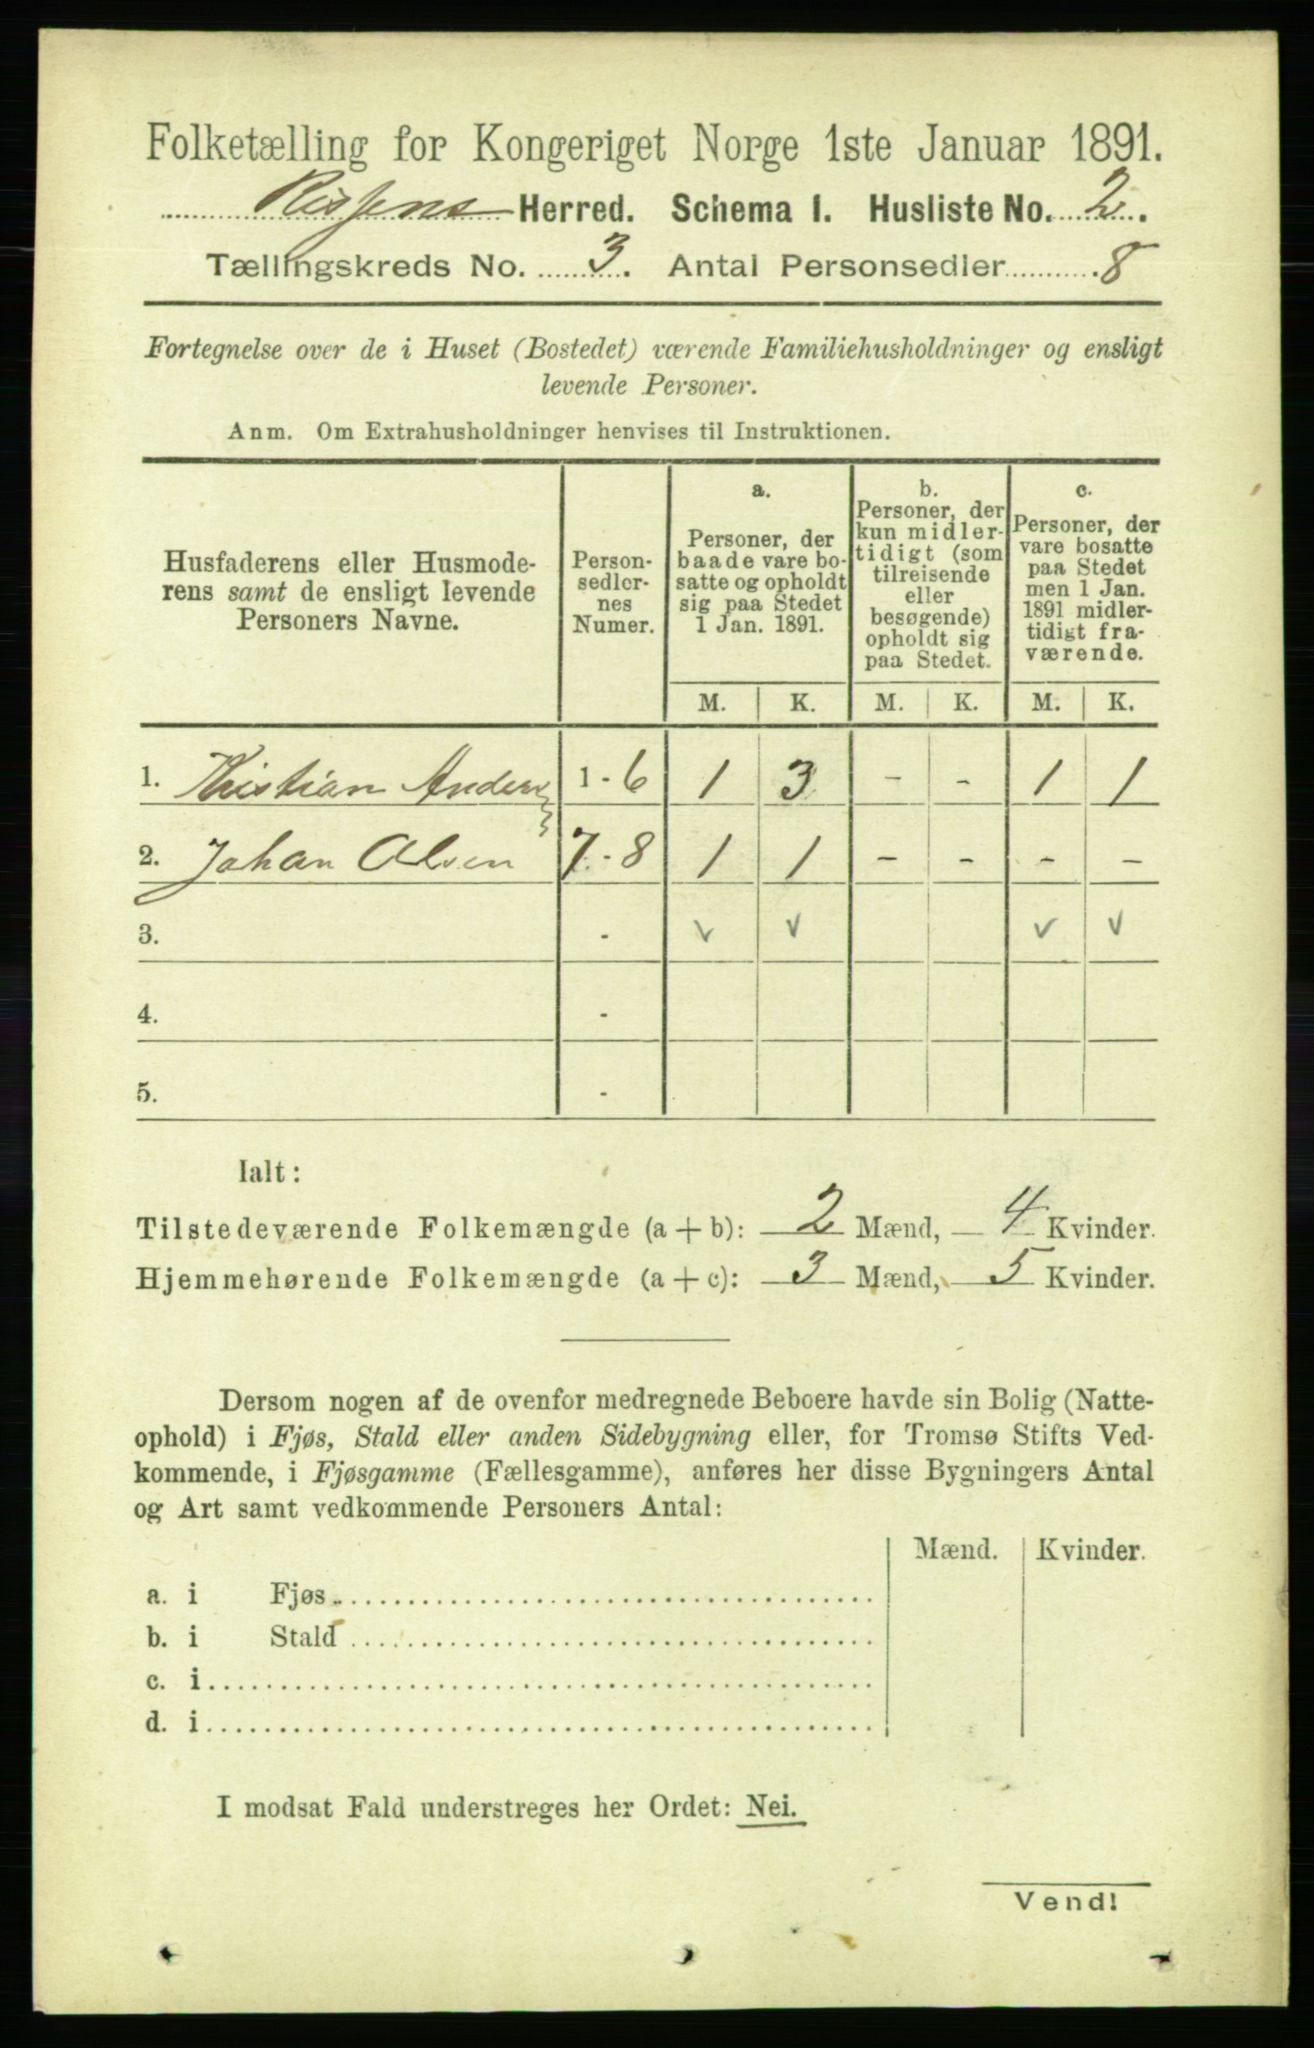 Folketælling for Kongeriget Norge 1ste Januar 1891.
Rissens Herred. Schema I. Husliste No. 2.
Tællingskreds No. 3. Antal Personsedler 8
Fortegnelse over de i Huset (Bostedet) værende Familiehusholdninger og ensligt
levende Personer.
Anm. Om Extrahusholdninger henvises til Instruktionen.
Husfaderens eller Husmode-
rens samt de ensligt levende
Personers Navne.
Person-
sedler-
nes
Numer.
a.
Personer, der
baade vare bo-
satte og opholdt
sig paa Stedet
1 Jan. 1891.
b.
Personer, der
kun midler-
tidigt (som
tilreisende
eller
besøgende)
opholdt sig
paa Stedet.
c.
Personer, der
vare bosatte
paa Stedet
men 1 Jan.
1891 midler-
tidigt fra-
værende.
M. K. M. K. M. K.
1. Kristian 1 - 6 1 3 - - 1 1
2. Johan Olsen 7 - 8 1 1 - - - -
3. - v v v v
4. -
5. -
Ialt:
Tilstedeværende Folkemængde (a + b): 2 Mænd, 4 Kvinder.
Hjemmehørende Folkemængde (a + c): 3 Mænd, 5 Kvinder.
Dersom nogen af de ovenfor medregnede Beboere havde sin Bolig (Natte-
ophold) i Fjøs, Stald eller anden Sidebygning eller, for Tromsø Stifts Ved-
kommende, i Fjøsgamme (Fællesgamme), anføres her disse Bygningers Antal
og Art samt vedkommende Personers Antal:
Mænd. Kvinder.
a. i Fjøs
b. i Stald
c. i
d. i
I modsat Fald understreges her Ordet: Nei.
Vend!